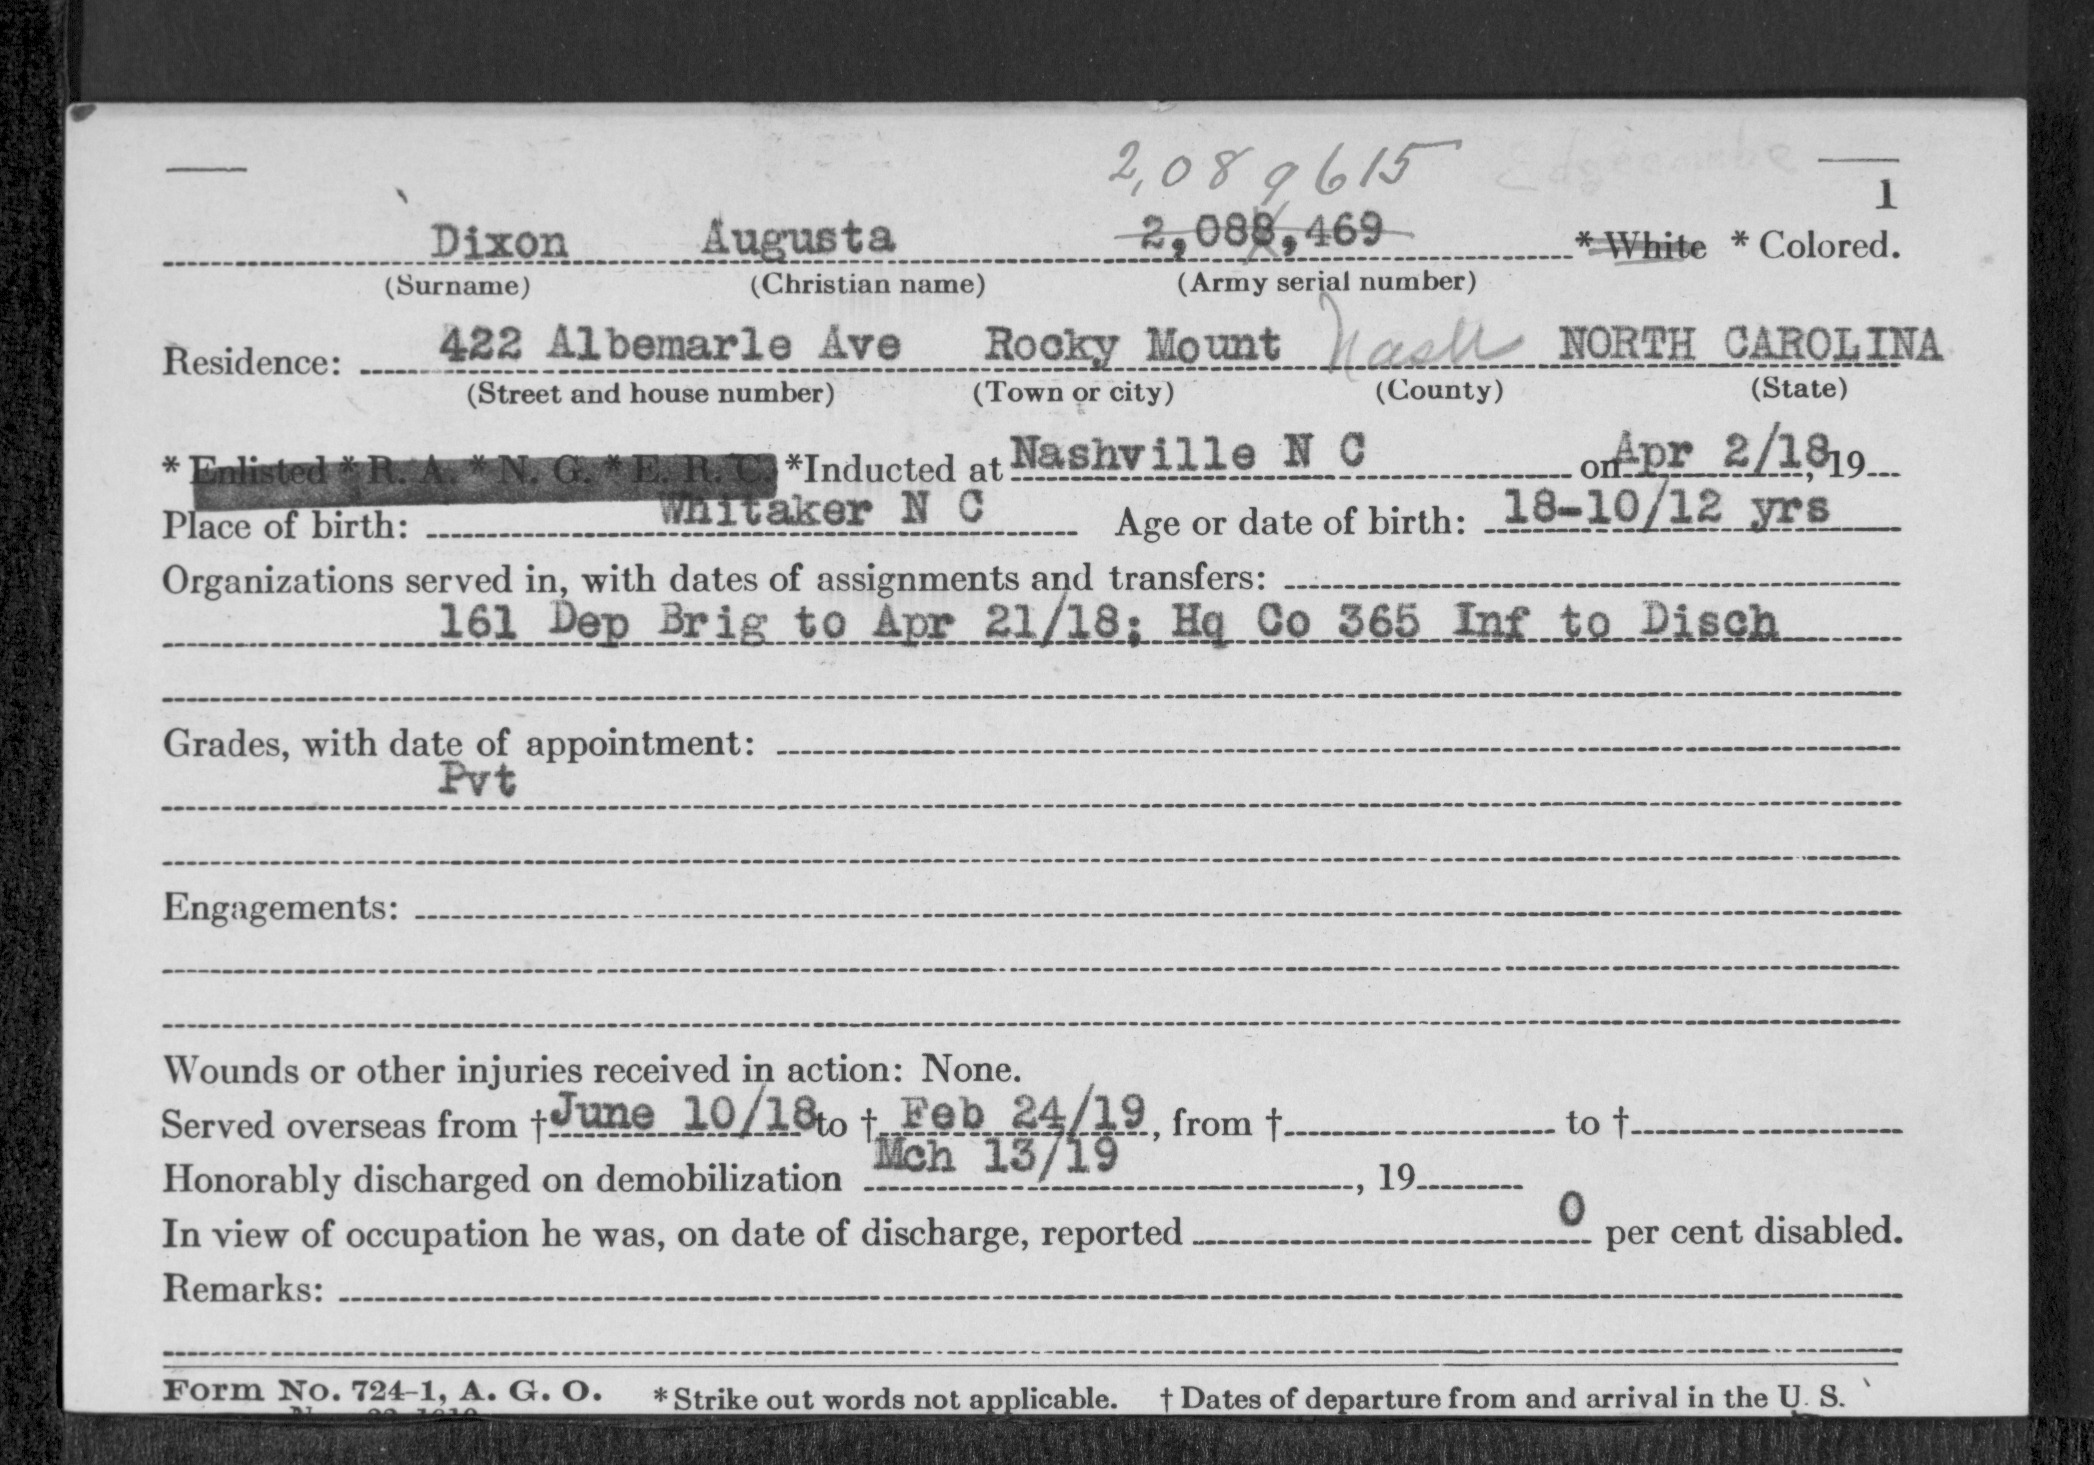 2,089615 Edgecombe
1
Dixon Augusta 2,088,469 * White * Colored.
(Surname) (Christian name) (Army serial number)
Residence: 422 Albemarle Ave Rocky Mount Nash NORTH CAROLINA
(Street and house number) (Town or city) (County) (State)
* Enlisted * R. A. * N. G. * E. R. C. *Inducted at Nashville N C on Apr 2/18, 19
Place of birth: Whitaker N C Age or date of birth: 18-10/12 yrs
Organizations served in, with dates of assignments and transfers:
161 Dep Brig to Apr 21/18; Hq Co 365 Inf to Disch
Grades, with date of appointment:
Pvt
Engagements:
Wounds or other injuries received in action: None.
Served overseas from † June 10/18 to † Feb 24/19, from † to †
Honorably discharged on demobilization Mch 13/19, 19
In view of occupation he was, on date of discharge, reported 0 per cent disabled.
Remarks:
Form No. 724-1, A. G. O. * Strike out words not applicable. † Dates of departure from and arrival in the U. S.